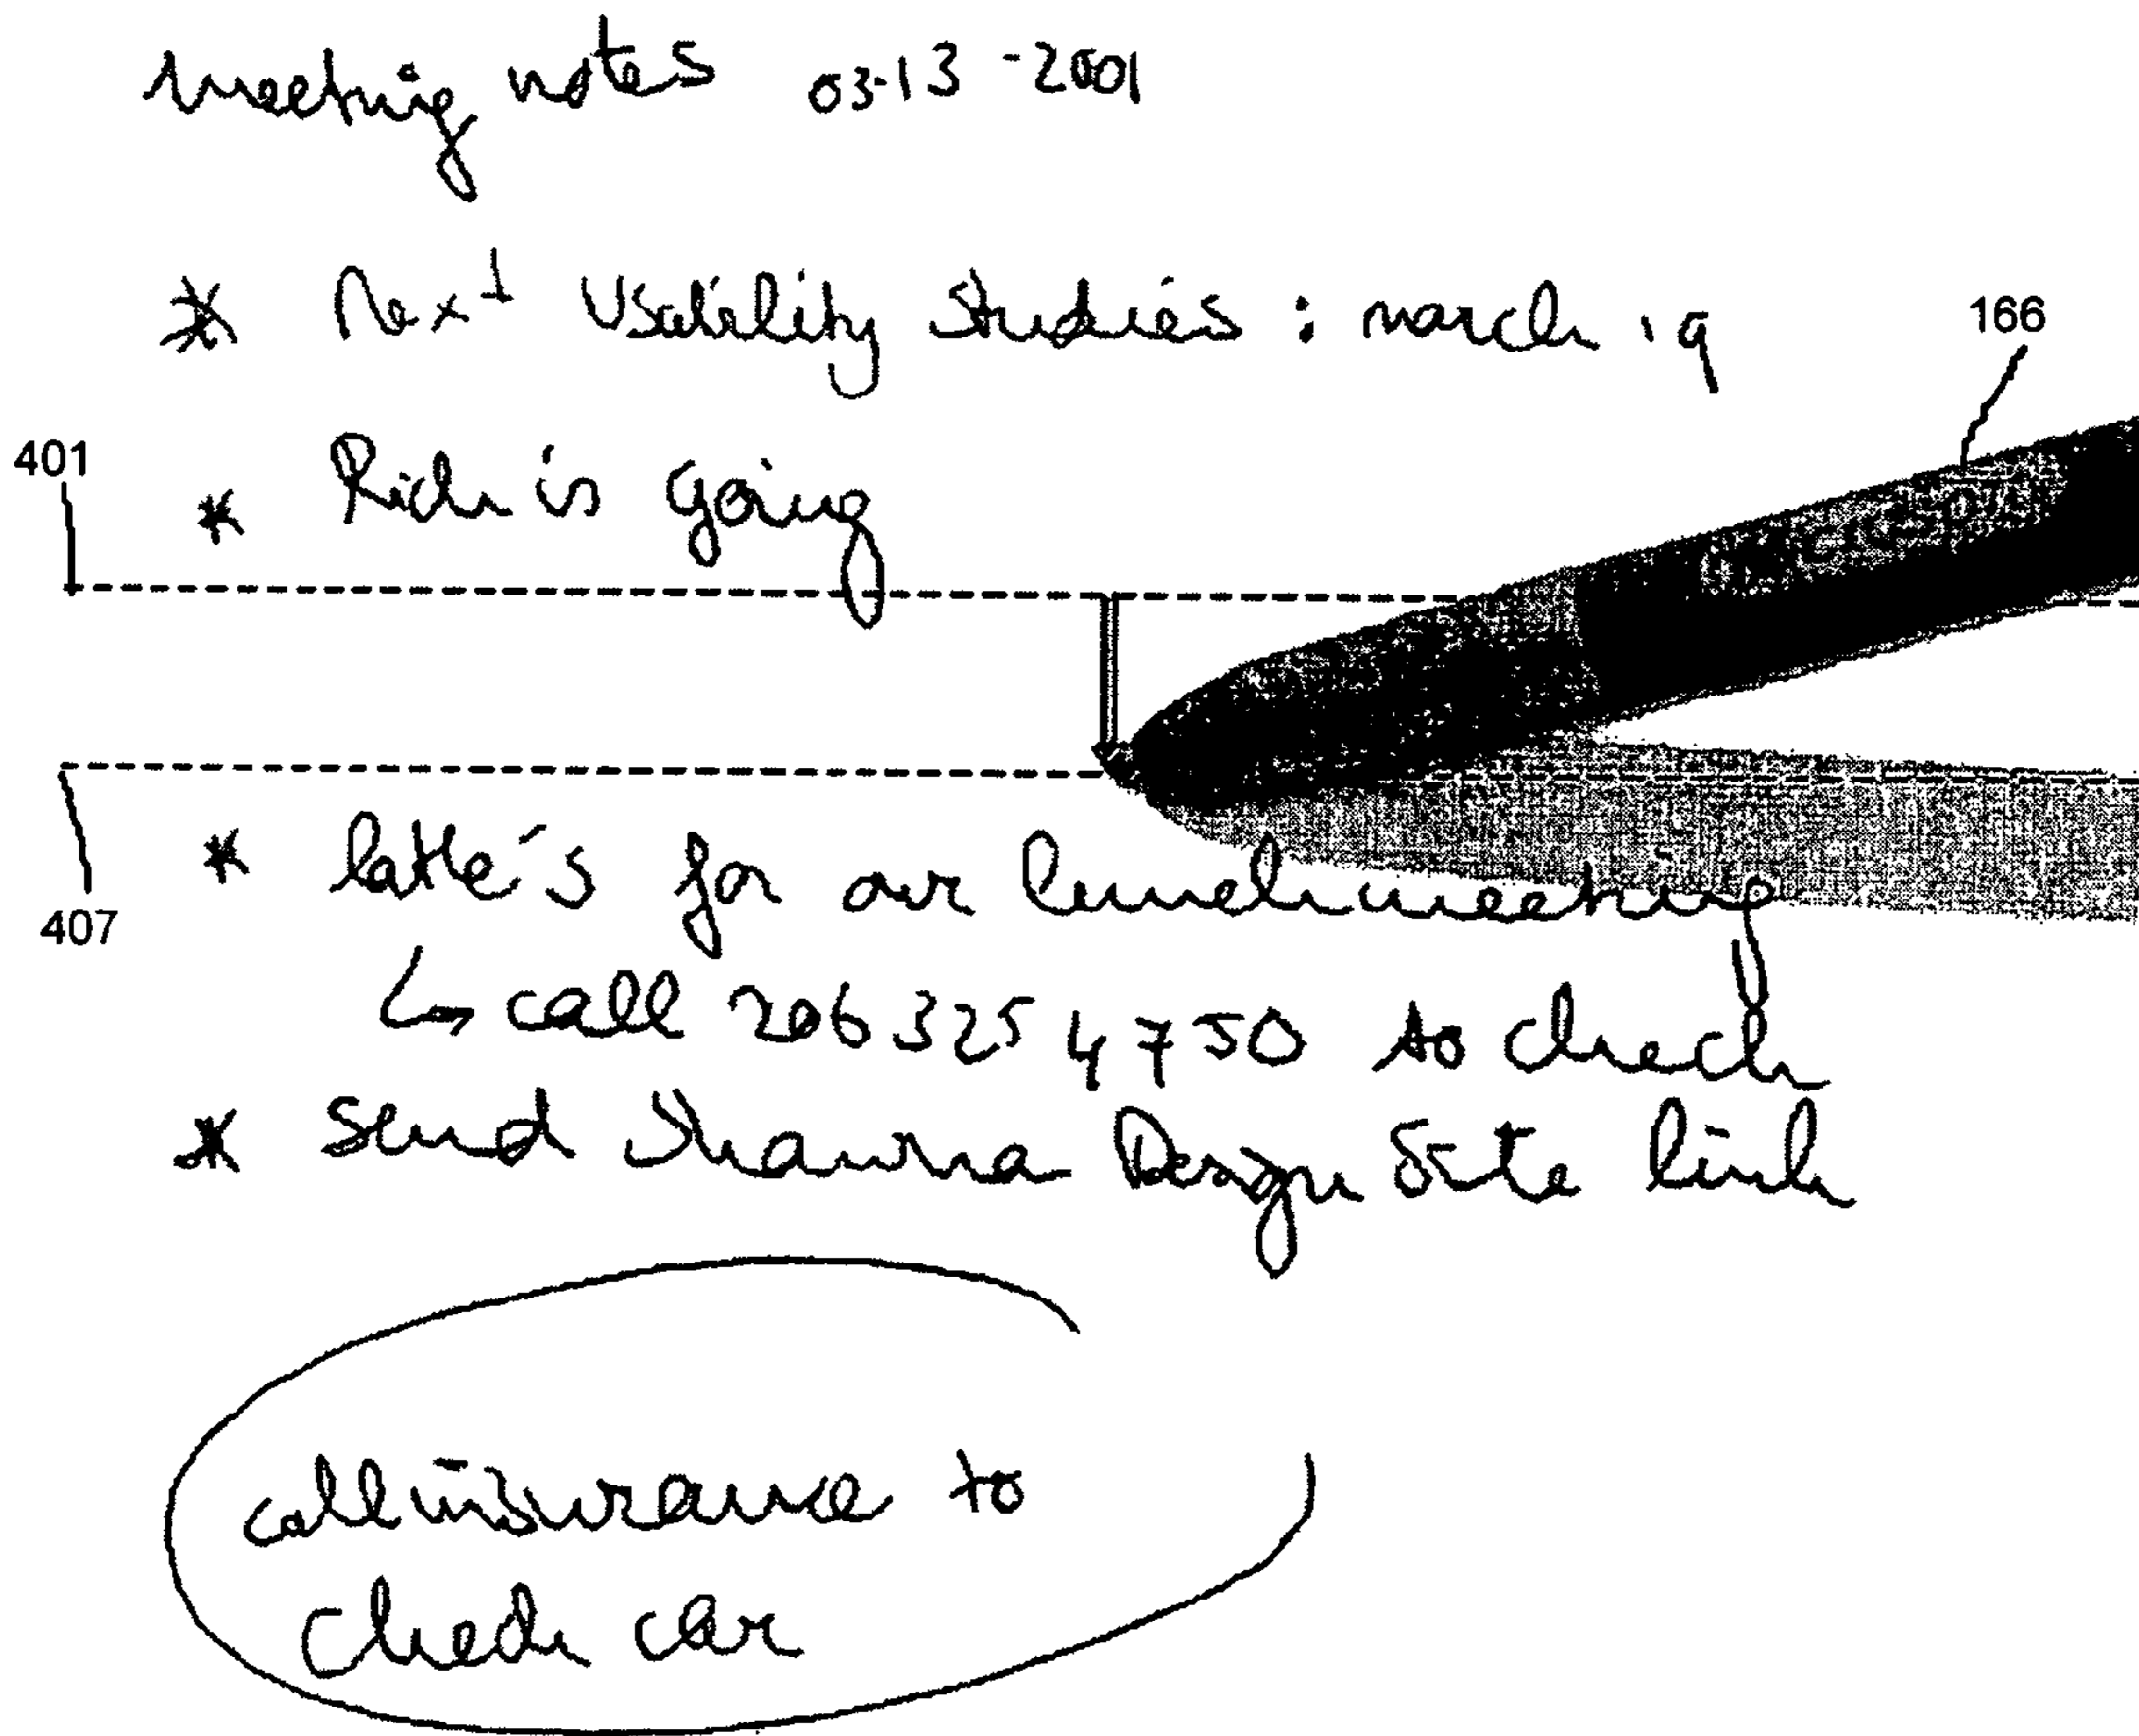 meeting notes 03-13-2001
* Next Usability Studies : march 19
166
401
* Rich is going
* latte's for our lunch meeting
407
↳ call 206 325 4750 to check
* Send Shawna Design Site link
call insurance to
check car